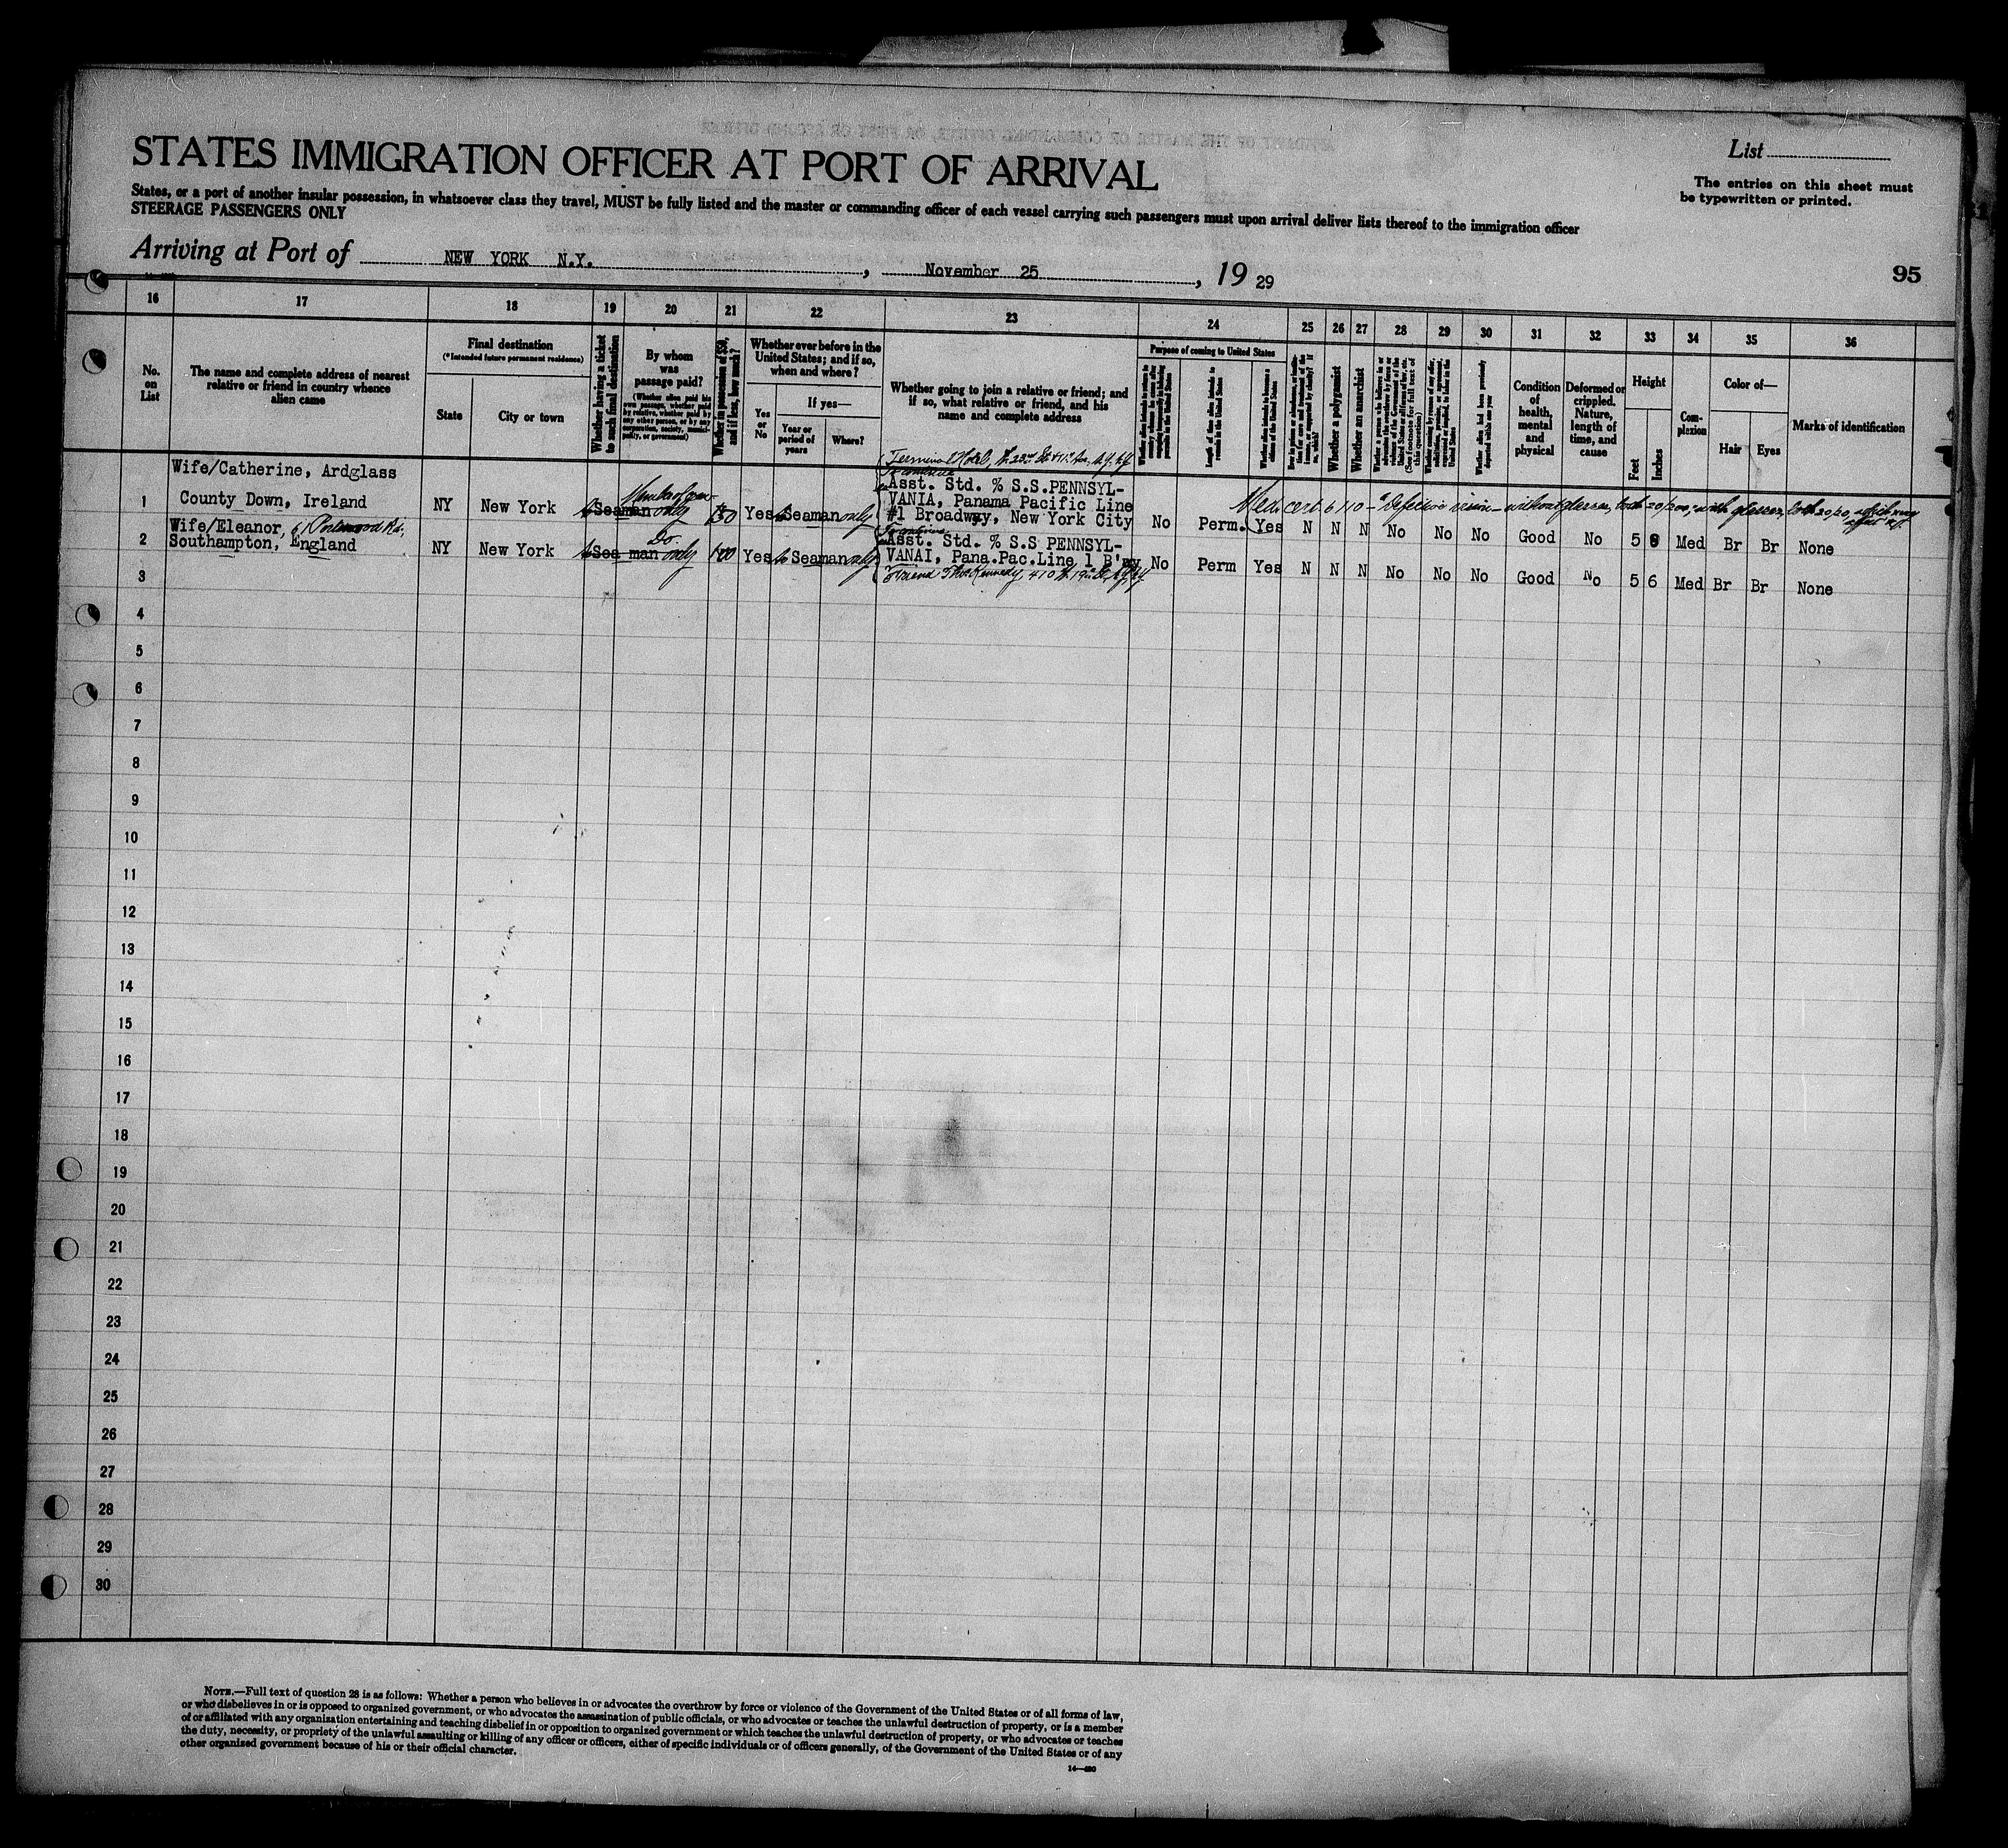 STATES IMMIGRATION OFFICER AT PORT OF ARRIVAL
List
The entries on this sheet must
be typewritten or printed.
States, or a port of another insular possession, in whatsoever class they travel, MUST be fully listed and the master or commanding officer of each vessel carrying such passengers must upon arrival deliver lists thereof to the immigration officer
STEERAGE PASSENGERS ONLY
Arriving at Port of NEW YORK N.Y. , November 25 , 19 29
95
16 17 18 19 20 21 22 23 24 25 26 27 28 29 30 31 32 33 34 35 36
No.
on
List
The name and complete address of nearest
relative or friend in country whence
alien came
Final destination
(*Intended future permanent residence)
State
City or town
Whether having a ticket
to such final destination
By whom
was
passage paid?
(Whether alien paid his
own passage, whether paid
by relative, whether paid by
any other person, or by any
corporation, society, munici-
pality, or government)
Whether in possession of $50,
and if less, how much?
Whether ever before in the
United States; and if so,
when and where?
Yes
or
No
If yes—
Year or
period of
years
Where?
Whether going to join a relative or friend; and
if so, what relative or friend, and his
name and complete address
Purpose of coming to United States
Length of time alien intends to
remain in the United States
Whether a polygamist
Whether an anarchist
(See footnote for full text of
this question)
Condition
of
health,
mental
and
physical
Deformed or
crippled.
Nature,
length of
time, and
cause
Height
Feet
Inches
Com-
plexion
Color of—
Hair
Eyes
Marks of identification
Terminal Hotel,
Wife/Catherine, Ardglass
County Down, Ireland
1
NY New York Seaman only 150 Yes Seaman only
Asst. Std. % S.S.PENNSYL-
VANIA, Panama Pacific Line
#1 Broadway, New York City
Med. cert. defective vision - without glasses, both 20/200, with glasses, both 20/20,
No Perm. Yes N N N No No No Good No 5 8 Med Br Br None
Wife/Eleanor, 61 Rd.,
Southampton, England
2
Do.
NY New York Sea man only 100 Yes Seaman only
Asst. Std. % S.S PENNSYL-
VANAI, Pana.Pac.Line 1 B'way
Friend Thos Kennedy, 410 W. 19th St.,
No Perm Yes N N N No No No Good No 5 6 Med Br Br None
3
4
5
6
7
8
9
10
11
12
13
14
15
16
17
18
19
20
21
22
23
24
25
26
27
28
29
30
NOTE.—Full text of question 28 is as follows: Whether a person who believes in or advocates the overthrow by force or violence of the Government of the United States or of all forms of law,
or who disbelieves in or is opposed to organized government, or who advocates the assassination of public officials, or who advocates or teaches the unlawful destruction of property, or is a member
of or affiliated with any organization entertaining and teaching disbelief in or opposition to organized government or which teaches the unlawful destruction of property, or who advocates or teaches
the duty, necessity, or propriety of the unlawful assaulting or killing of any officer or officers, either of specific individuals or of officers generally, of the Government of the United States or of any
other organized government because of his or their official character.